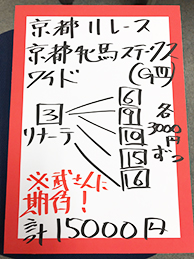 京都11レース
京都牝馬ステークス
(GⅢ)
ワイド
3
リナーテ
6
9
10
15
16
各3000円ずつ
※武さんに
期待!
計15000円